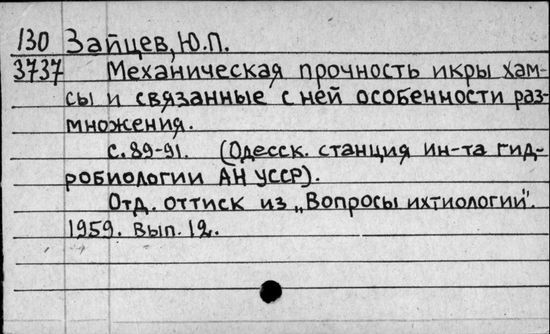 130 Зайцев, Ю.П.
3737 Механическая прочность икры хам-
сы и связанные с ней особенности раз-
множения.
с. 89-91. (Одесск. станция ин-та гид-
робиологии АН УССР).
Отд. оттиск из „Вопросы ихтиологии".
1959. Вып. 12.